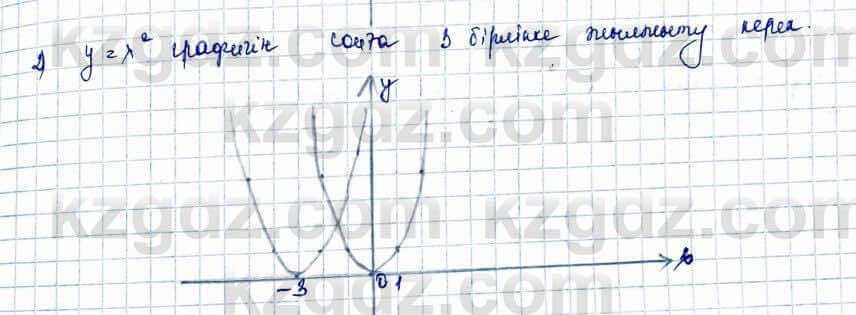 2) y = x² графигін солға 3 бірлікке жылжыту керек.
y
-3 0 1 x
kzgdz.com kzgdz.com
kzgdz.com kzgdz.com
kzgdz.com kzgdz.com
kzgdz.com kzgdz.com